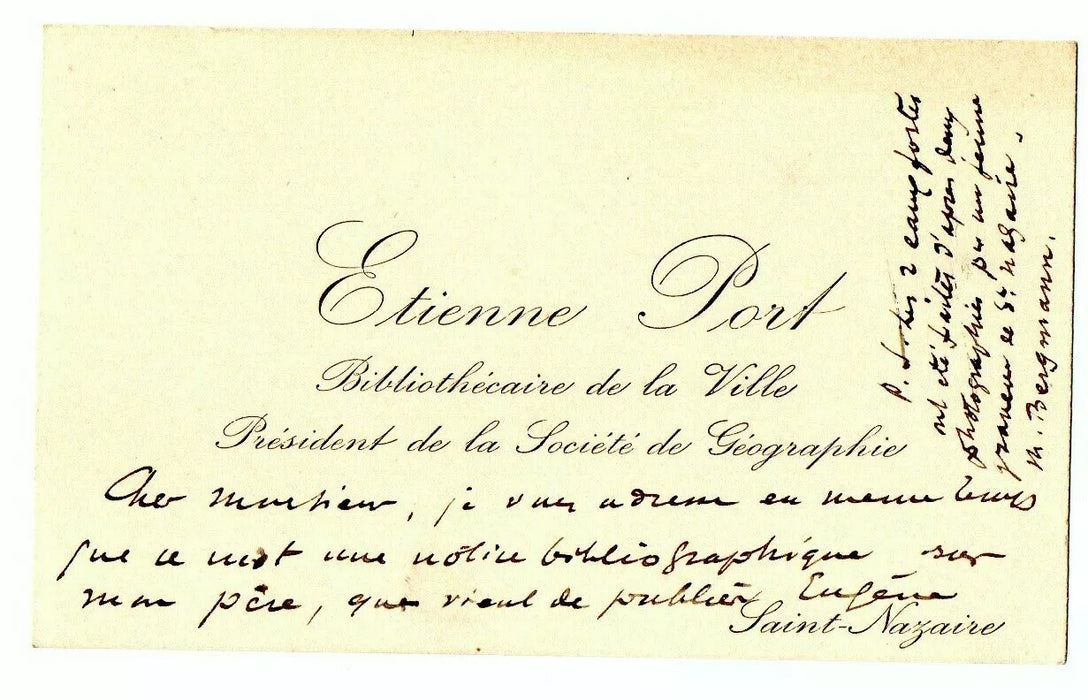 Etienne Port
Bibliothécaire de la Ville
Président de la Société de Géographie
Cher monsieur, je vous adresse en meme temps
que ce mot une notice bibliographique sur
mon père, que vient de publier Eugène
Saint-Nazaire
P. S. 2 eaux fortes
ont été faites d'après deux
photographies par un jeune
graveur de St Nazaire.
M. Bergmann.